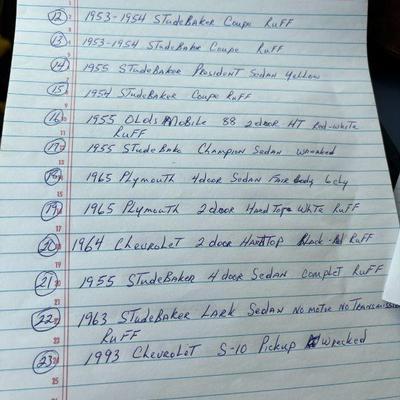 12 1953-1954 STudeBaker Coupe RuFF
13 1953-1954 STudeBaker Coupe RuFF
14 1955 STudeBaker President Sedan Yellow
15 1954 STudeBaker Coupe RuFF
16 1955 OLdsMobile 88 2 door HT Red-white
RuFF
17 1955 STudeBake Champion Sedan wrecked
18 1965 PLymouth 4 door Sedan Fair Body 6 cly
19 1965 PLymouth 2 door Hard Top White RuFF
20 1964 ChevroLeT 2 door HardTop Black-Red RuFF
21 1955 STudeBaker 4 door Sedan CompleT RuFF
22 1963 STudeBaker Lark Sedan No motor No Transmission
RuFF
23 1993 ChevroLeT S-10 Pickup Wrecked
25